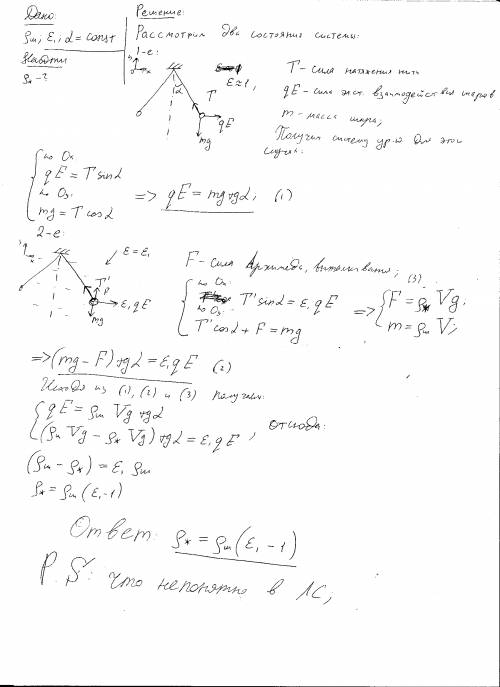 Дано:
ρш, ε₁, α = const
Найти
ρж - ?
Решение:
Рассмотрим два состояния системы:
1-е:
y
x
α
T
qE
mg
ε≈1,
T - сила натяжения нити
qE - сила эл. взаимодействия шаров
m - масса шара;
Получим систему ур-й для этих
случая:
по Ox
qE = T sinα
по Oy
mg = T cosα
=> qE = mg tgα; (1)
2-е:
x
ε = ε₁
T'
F
ε₁qE
mg
F - сила Архимеда, выталкивает;
по Ox
T' sinα = ε₁qE
по Oy
T' cosα + F = mg
=>
(3)
F = ρж Vg;
m = ρш V;
=> (mg - F) tgα = ε₁qE (2)
Исходя из (1), (2) и (3) получим:
qE = ρш Vg tgα
(ρш Vg - ρж Vg) tgα = ε₁qE, отсюда:
(ρш - ρж) = ε₁ ρш
ρж = ρш (ε₁-1)
Ответ: ρж = ρш (ε₁-1)
P.S: что непонятно в ЛС,